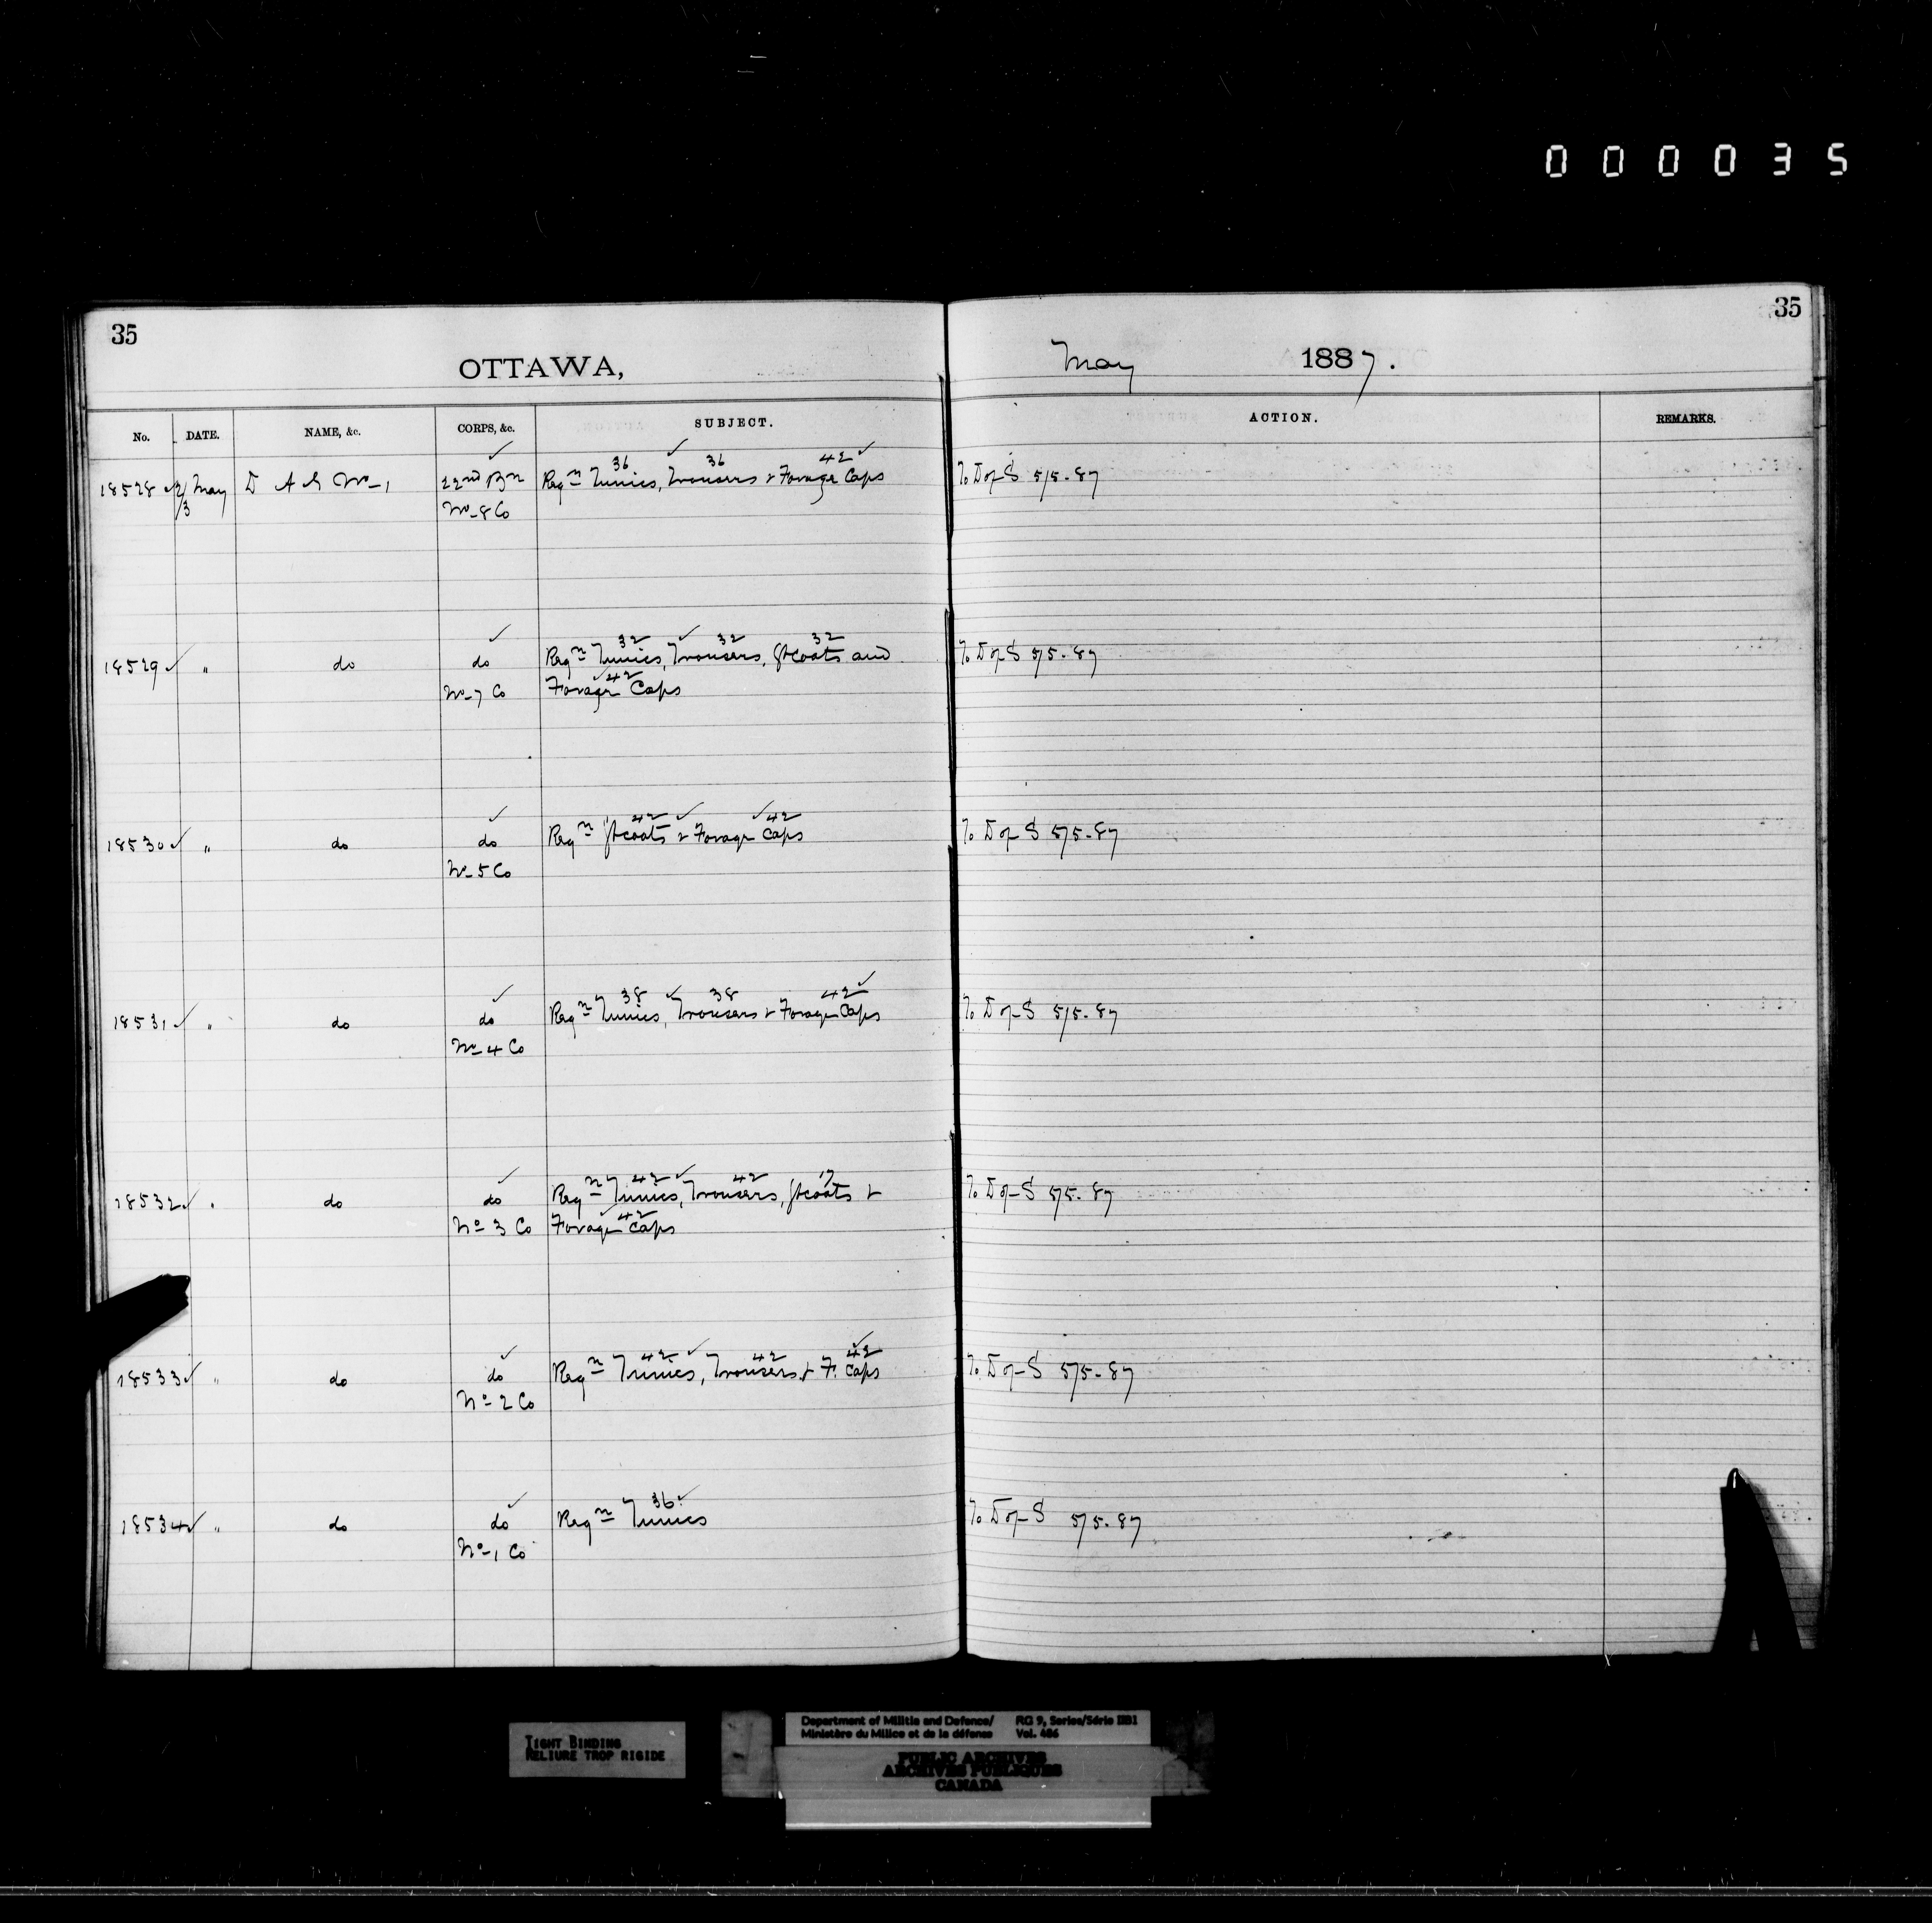 000035
35
35
OTTAWA,
May 1887.
No. DATE. NAME, &c. CORPS, &c. SUBJECT. ACTION. REMARKS.
36 36 42
18528 2/3 May D A G No 1 22nd Bn Reqn Tunics, Trousers & Forage Caps To D of S 5/5-87
No 8 Co
32 32 32
18529 " do do Reqn Tunics, Trousers, Gtcoats and To D of S 5/5-87
42
No 7 Co Forage Caps
42 42
18530 " do do Reqn Gtcoats & Forage Caps To D of S 5/5-87
No 5 Co
38 38 42
18531 " do do Reqn Tunics, Trousers & Forage Caps To D of S 5/5-87
No 4 Co
42 42 17
18532 " do do Reqn Tunics, Trousers, Gtcoats & To D of S 5/5-87
42
No 3 Co Forage Caps
42 42 42
18533 " do do Reqn Tunics, Trousers & F. Caps To D of S 5/5-87
No 2 Co
36
18534 " do do Reqn Tunics To D of S 5/5-87
No 1 Co
TIGHT BINDING
RELIURE TROP RIGIDE
Department of Militia and Defence/ RG 9, Series/Série IIB1
Ministère du Milice et de la défense Vol. 486
PUBLIC ARCHIVES
ARCHIVES PUBLIQUES
CANADA